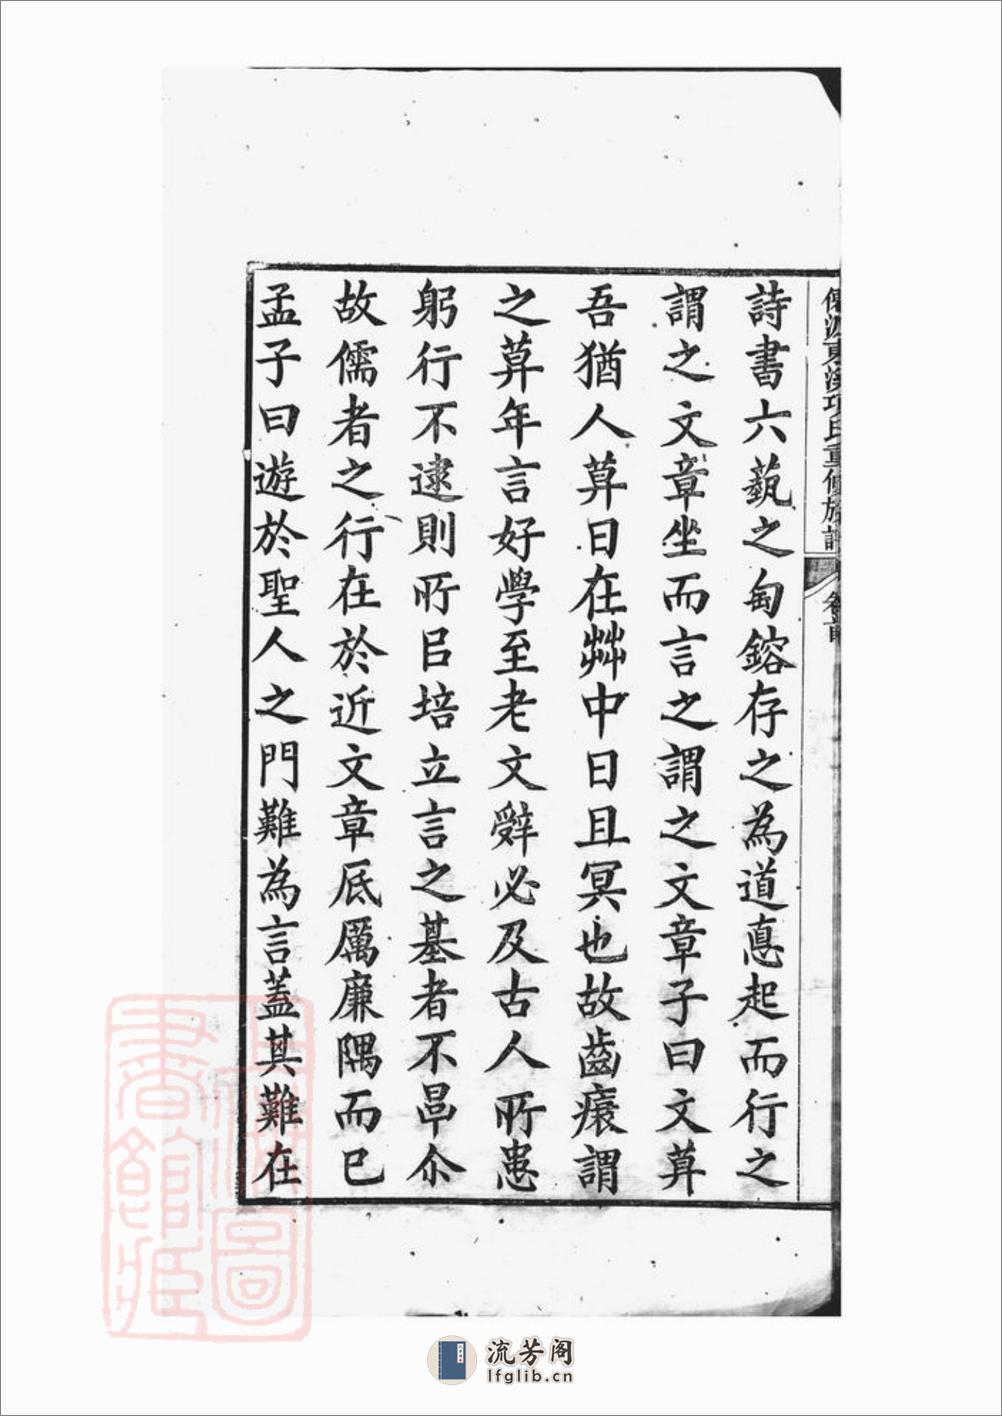 詩書六蓺之匋鎔存之為道悳起而行之
謂之文章坐而言之謂之文章子曰文萛
吾猶人萛日在茻中日且冥也故齒㿈謂
之萛年言好學至老文辤必及古人所患
躬行不逮則所㠯培立言之基者不㫗尒
故儒者之行在於近文章底厲廉隅而已
孟子曰遊於聖人之門難為言蓋其難在
東溪項氏重修族譜
卷首
流芳阁
lfglib.cn